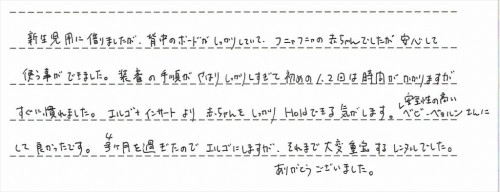 新生児用に借りましたが、背中のボードがしっかりしていて、フニャフニャの赤ちゃんでしたが安心して
使う事ができました。装着の手順がやはりしっかりしすぎて初めの1.2回は時間がかかりますが
すぐに慣れました。エルゴ+インサートより赤ちゃんをしっかりHoldできる気がします。安定性の高いベビービョルンさんに
して良かったです。4ヶ月を過ぎたのでエルゴにしますが、それまで大変重宝するレンタルでした。
ありがとうございました。